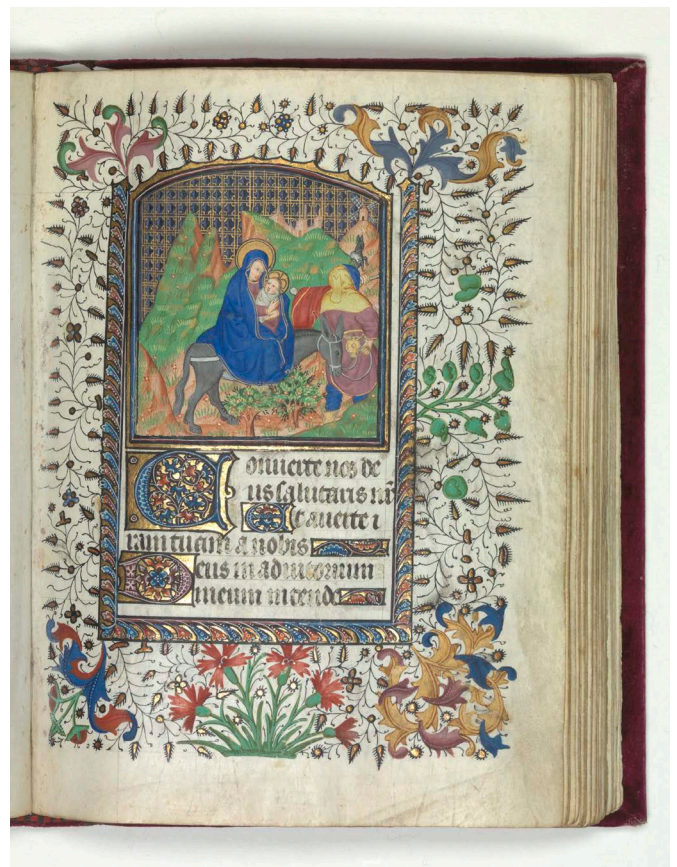 Conuerte nos de
us salutaris nr̄
Et auerte i
ram tuam a nobis
Deus in adiutorium
meum intende